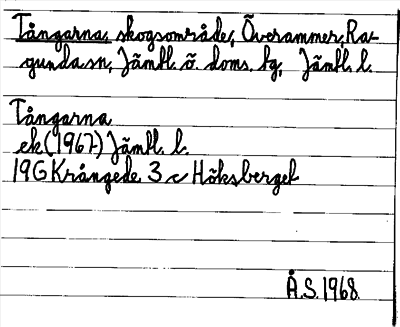 Tångarna, skogsområde, Överammer, Ra-
gunda sn, Jämtl. ö. doms. hg, Jämtl. l.
Tångarna
ek (1967) Jämtl. l.
19G Krångede 3 c Höksberget
Å.S. 1968.